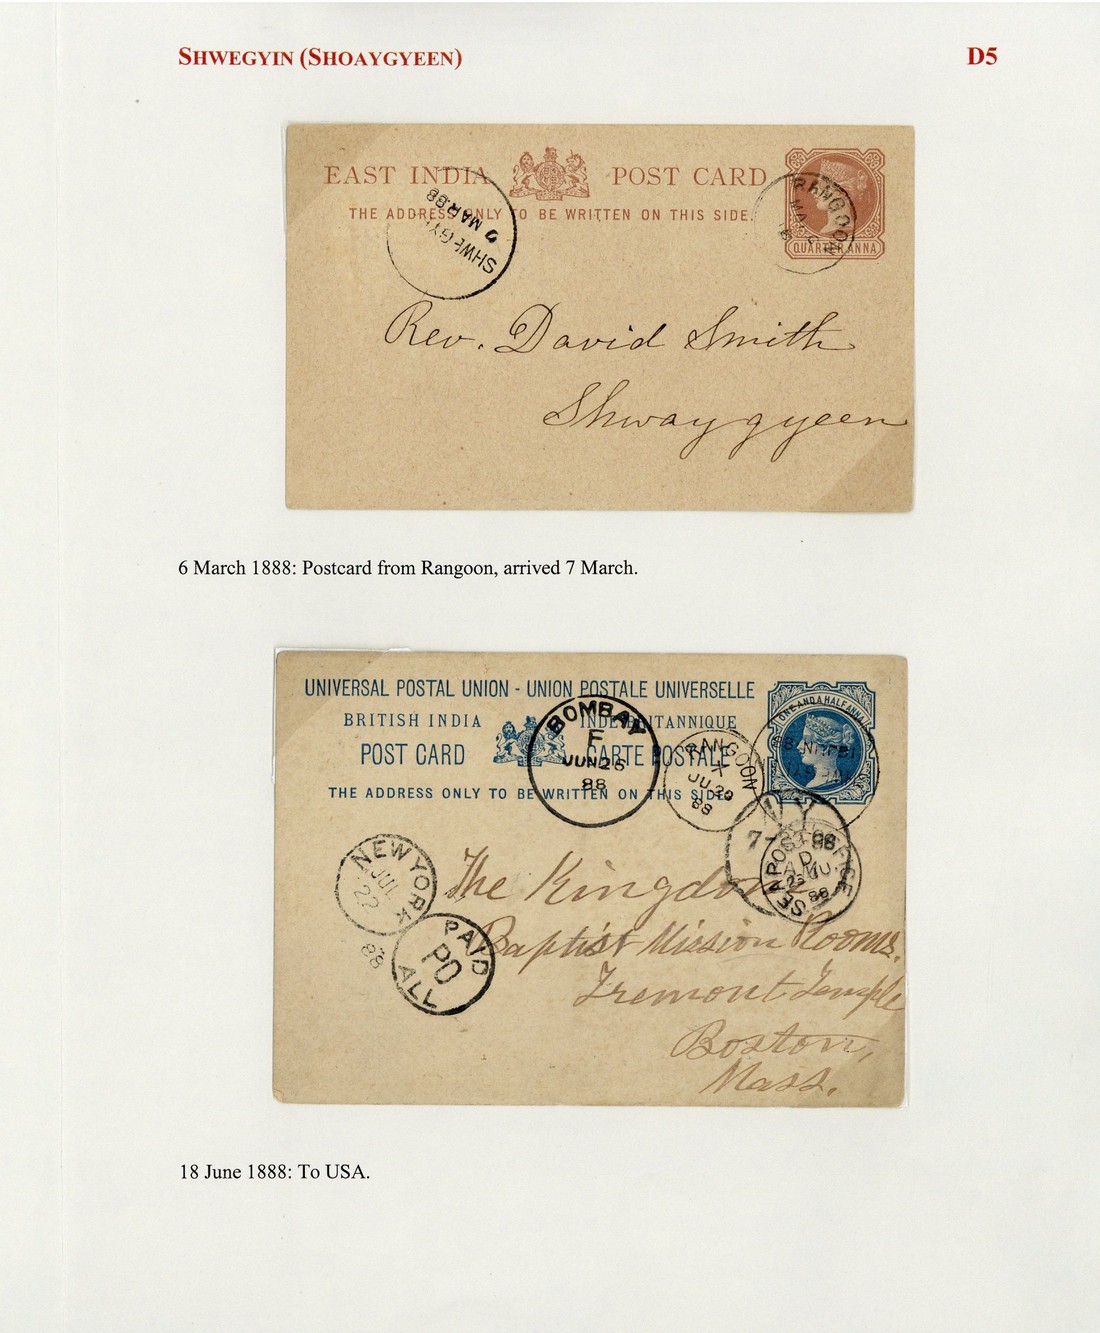 SHWEGYIN (SHOAYGYEEN)
D5
EAST INDIA POST CARD
THE ADDRESS ONLY TO BE WRITTEN ON THIS SIDE.
QUARTER ANNA
RANGOON
SHWEGY
MAR 88
Rev. David Smith
Shwaygyeen
6 March 1888: Postcard from Rangoon, arrived 7 March.
UNIVERSAL POSTAL UNION - UNION POSTALE UNIVERSELLE
ONE AND A HALF ANNA
BRITISH INDIA INDE BRITANNIQUE
POST CARD CARTE POSTALE
THE ADDRESS ONLY TO BE WRITTEN ON THIS SIDE
BOMBAY
F
JUN 26
88
RANGOON
JU 20
88
NY
SEA POST OFFICE
D
88
NEW YORK
JUL
22
88
PAID
PO
ALL
The Kingdom
Baptist Mission Rooms.
Tremont Temple
Boston,
Mass.
18 June 1888: To USA.